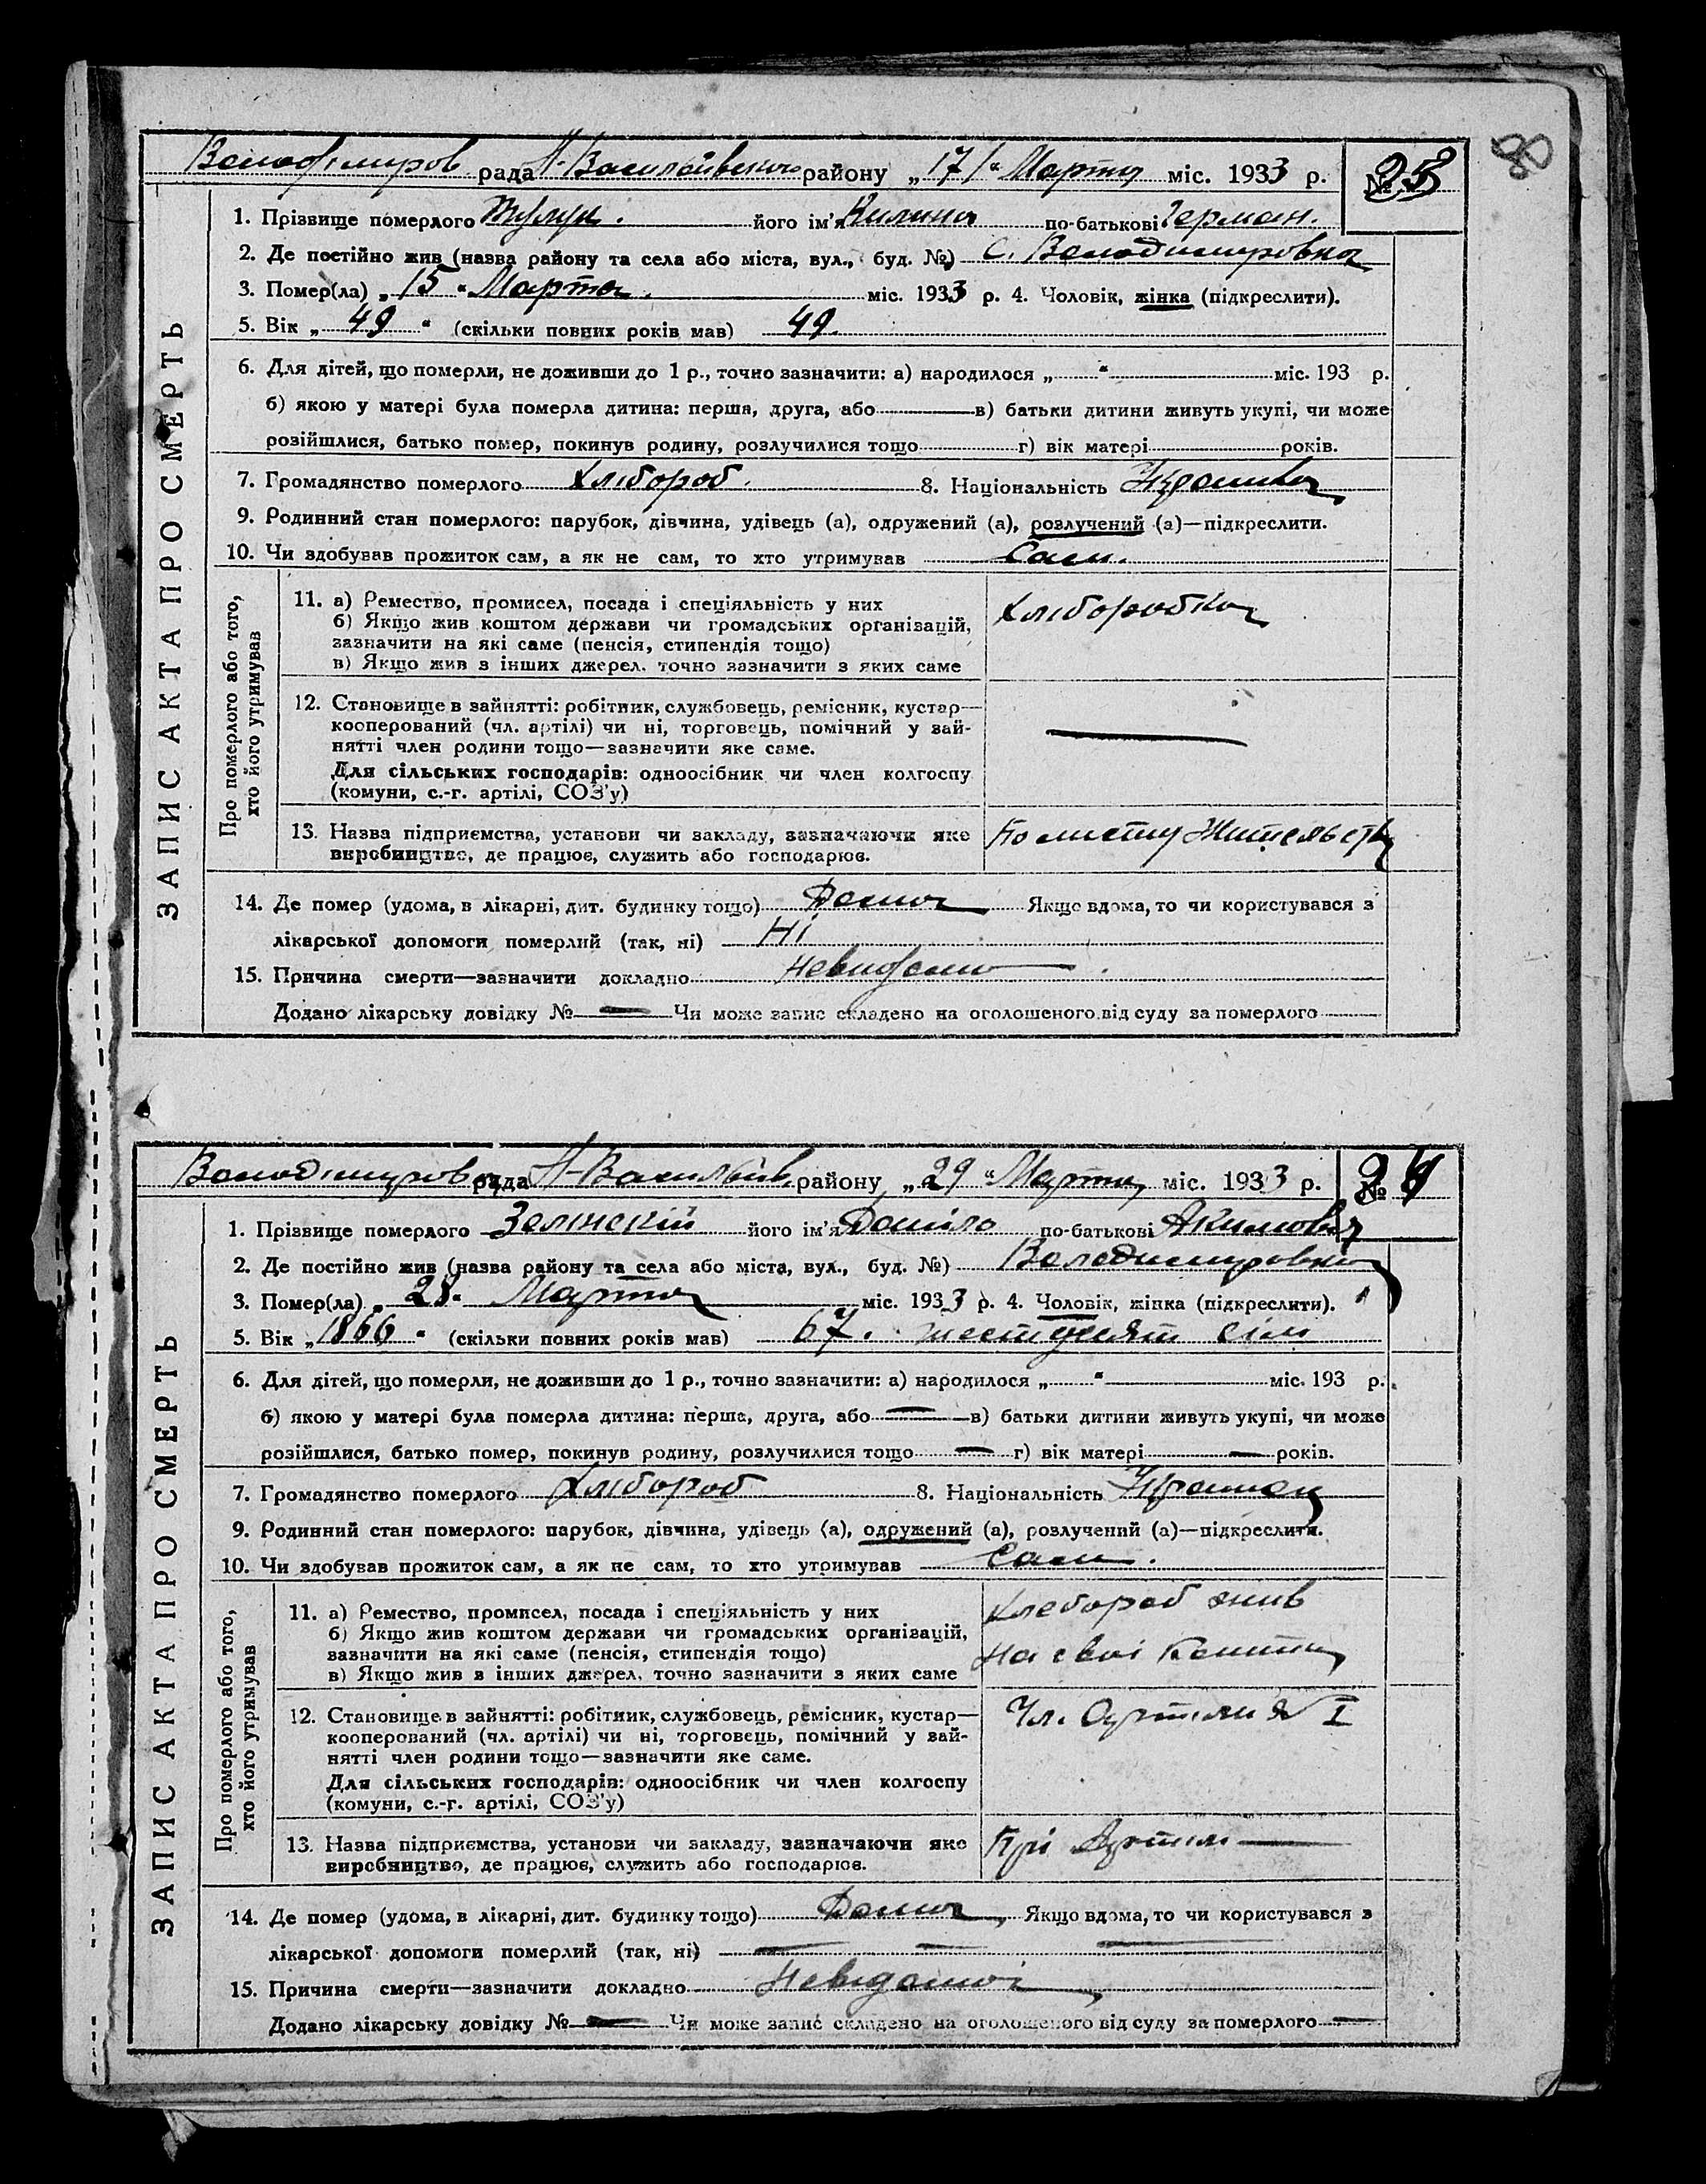 80
Володімиров рада Н-Василівського району „17" Марта міс. 1933 р. № 23
ЗАПИС АКТА ПРО СМЕРТЬ
1. Прізвище померлого його ім'я Килина по-батькові Герман.
2. Де постійно жив (назва району та села або міста, вул., буд. №) С. Володимировка
3. Помер(ла) „15" Марта міс. 1933 р. 4. Чоловік, жінка (підкреслити).
5. Вік „49" (скільки повних років мав) 49.
6. Для дітей, що померли, не доживши до 1 р., точно зазначити: а) народилося „ " міс. 193 р.
б) якою у матері була померла дитина: перша, друга, або в) батьки дитини живуть укупі, чи може
розійшлися, батько помер, покинув родину, розлучилися тощо г) вік матері років.
7. Громадянство померлого Хлібороб. 8. Національність
9. Родинний стан померлого: парубок, дівчина, удівець (а), одружений (а), розлучений (а)—підкреслити.
10. Чи здобував прожиток сам, а як не сам, то хто утримував Сам.
Про померлого або того,
хто його утримував
11. а) Ремество, промисел, посада і спеціяльність у них Хліборобка
б) Якщо жив коштом держави чи громадських організацій,
зазначити на які саме (пенсія, стипендія тощо)
в) Якщо жив з інших джерел, точно зазначити з яких саме
12. Становище в зайнятті: робітник, службовець, ремісник, кустар—
кооперований (чл. артілі) чи ні, торговець, помічний у зай-
нятті член родини тощо—зазначити яке саме. —
Для сільських господарів: одноосібник чи член колгоспу
(комуни, с.-г. артілі, СОЗ'у)
13. Назва підприємства, установи чи закладу, зазначаючи яке По місту Жительства
виробництво, де працює, служить або господарює.
14. Де помер (удома, в лікарні, дит. будинку тощо) Дома Якщо вдома, то чи користувався з
лікарської допомоги померлий (так, ні) Ні
15. Причина смерти—зазначити докладно Невидома
Додано лікарську довідку № — Чи може запис складено на оголошеного від суду за померлого
Володімировка рада Н-Василів. району „29" Марта міс. 1933 р. № 24
ЗАПИС АКТА ПРО СМЕРТЬ
1. Прізвище померлого Зелінскій його ім'я Даніло по-батькові Акимович
2. Де постійно жив (назва району та села або міста, вул., буд. №) Володимировка
3. Помер(ла) „28" Марта міс. 1933 р. 4. Чоловік, жінка (підкреслити).
5. Вік „1866" (скільки повних років мав) 67. шестдесят сім
6. Для дітей, що померли, не доживши до 1 р., точно зазначити: а) народилося „ " міс. 193 р.
б) якою у матері була померла дитина: перша, друга, або — в) батьки дитини живуть укупі, чи може
розійшлися, батько помер, покинув родину, розлучилися тощо — г) вік матері — років.
7. Громадянство померлого Хлібороб 8. Національність
9. Родинний стан померлого: парубок, дівчина, удівець (а), одружений (а), розлучений (а)—підкреслити.
10. Чи здобував прожиток сам, а як не сам, то хто утримував Сам.
Про померлого або того,
хто його утримував
11. а) Ремество, промисел, посада і спеціяльність у них Хлебороб жив
б) Якщо жив коштом держави чи громадських організацій,
зазначити на які саме (пенсія, стипендія тощо) на свої Кошти
в) Якщо жив з інших джерел, точно зазначити з яких саме
12. Становище в зайнятті: робітник, службовець, ремісник, кустар— Чл. Артили № I
кооперований (чл. артілі) чи ні, торговець, помічний у зай-
нятті член родини тощо—зазначити яке саме.
Для сільських господарів: одноосібник чи член колгоспу
(комуни, с.-г. артілі, СОЗ'у)
13. Назва підприємства, установи чи закладу, зазначаючи яке Прі Артилі —
виробництво, де працює, служить або господарює.
14. Де помер (удома, в лікарні, дит. будинку тощо) Дома Якщо вдома, то чи користувався з
лікарської допомоги померлий (так, ні) — — —
15. Причина смерти—зазначити докладно Невидомої
Додано лікарську довідку № — Чи може запис складено на оголошеного від суду за померлого —